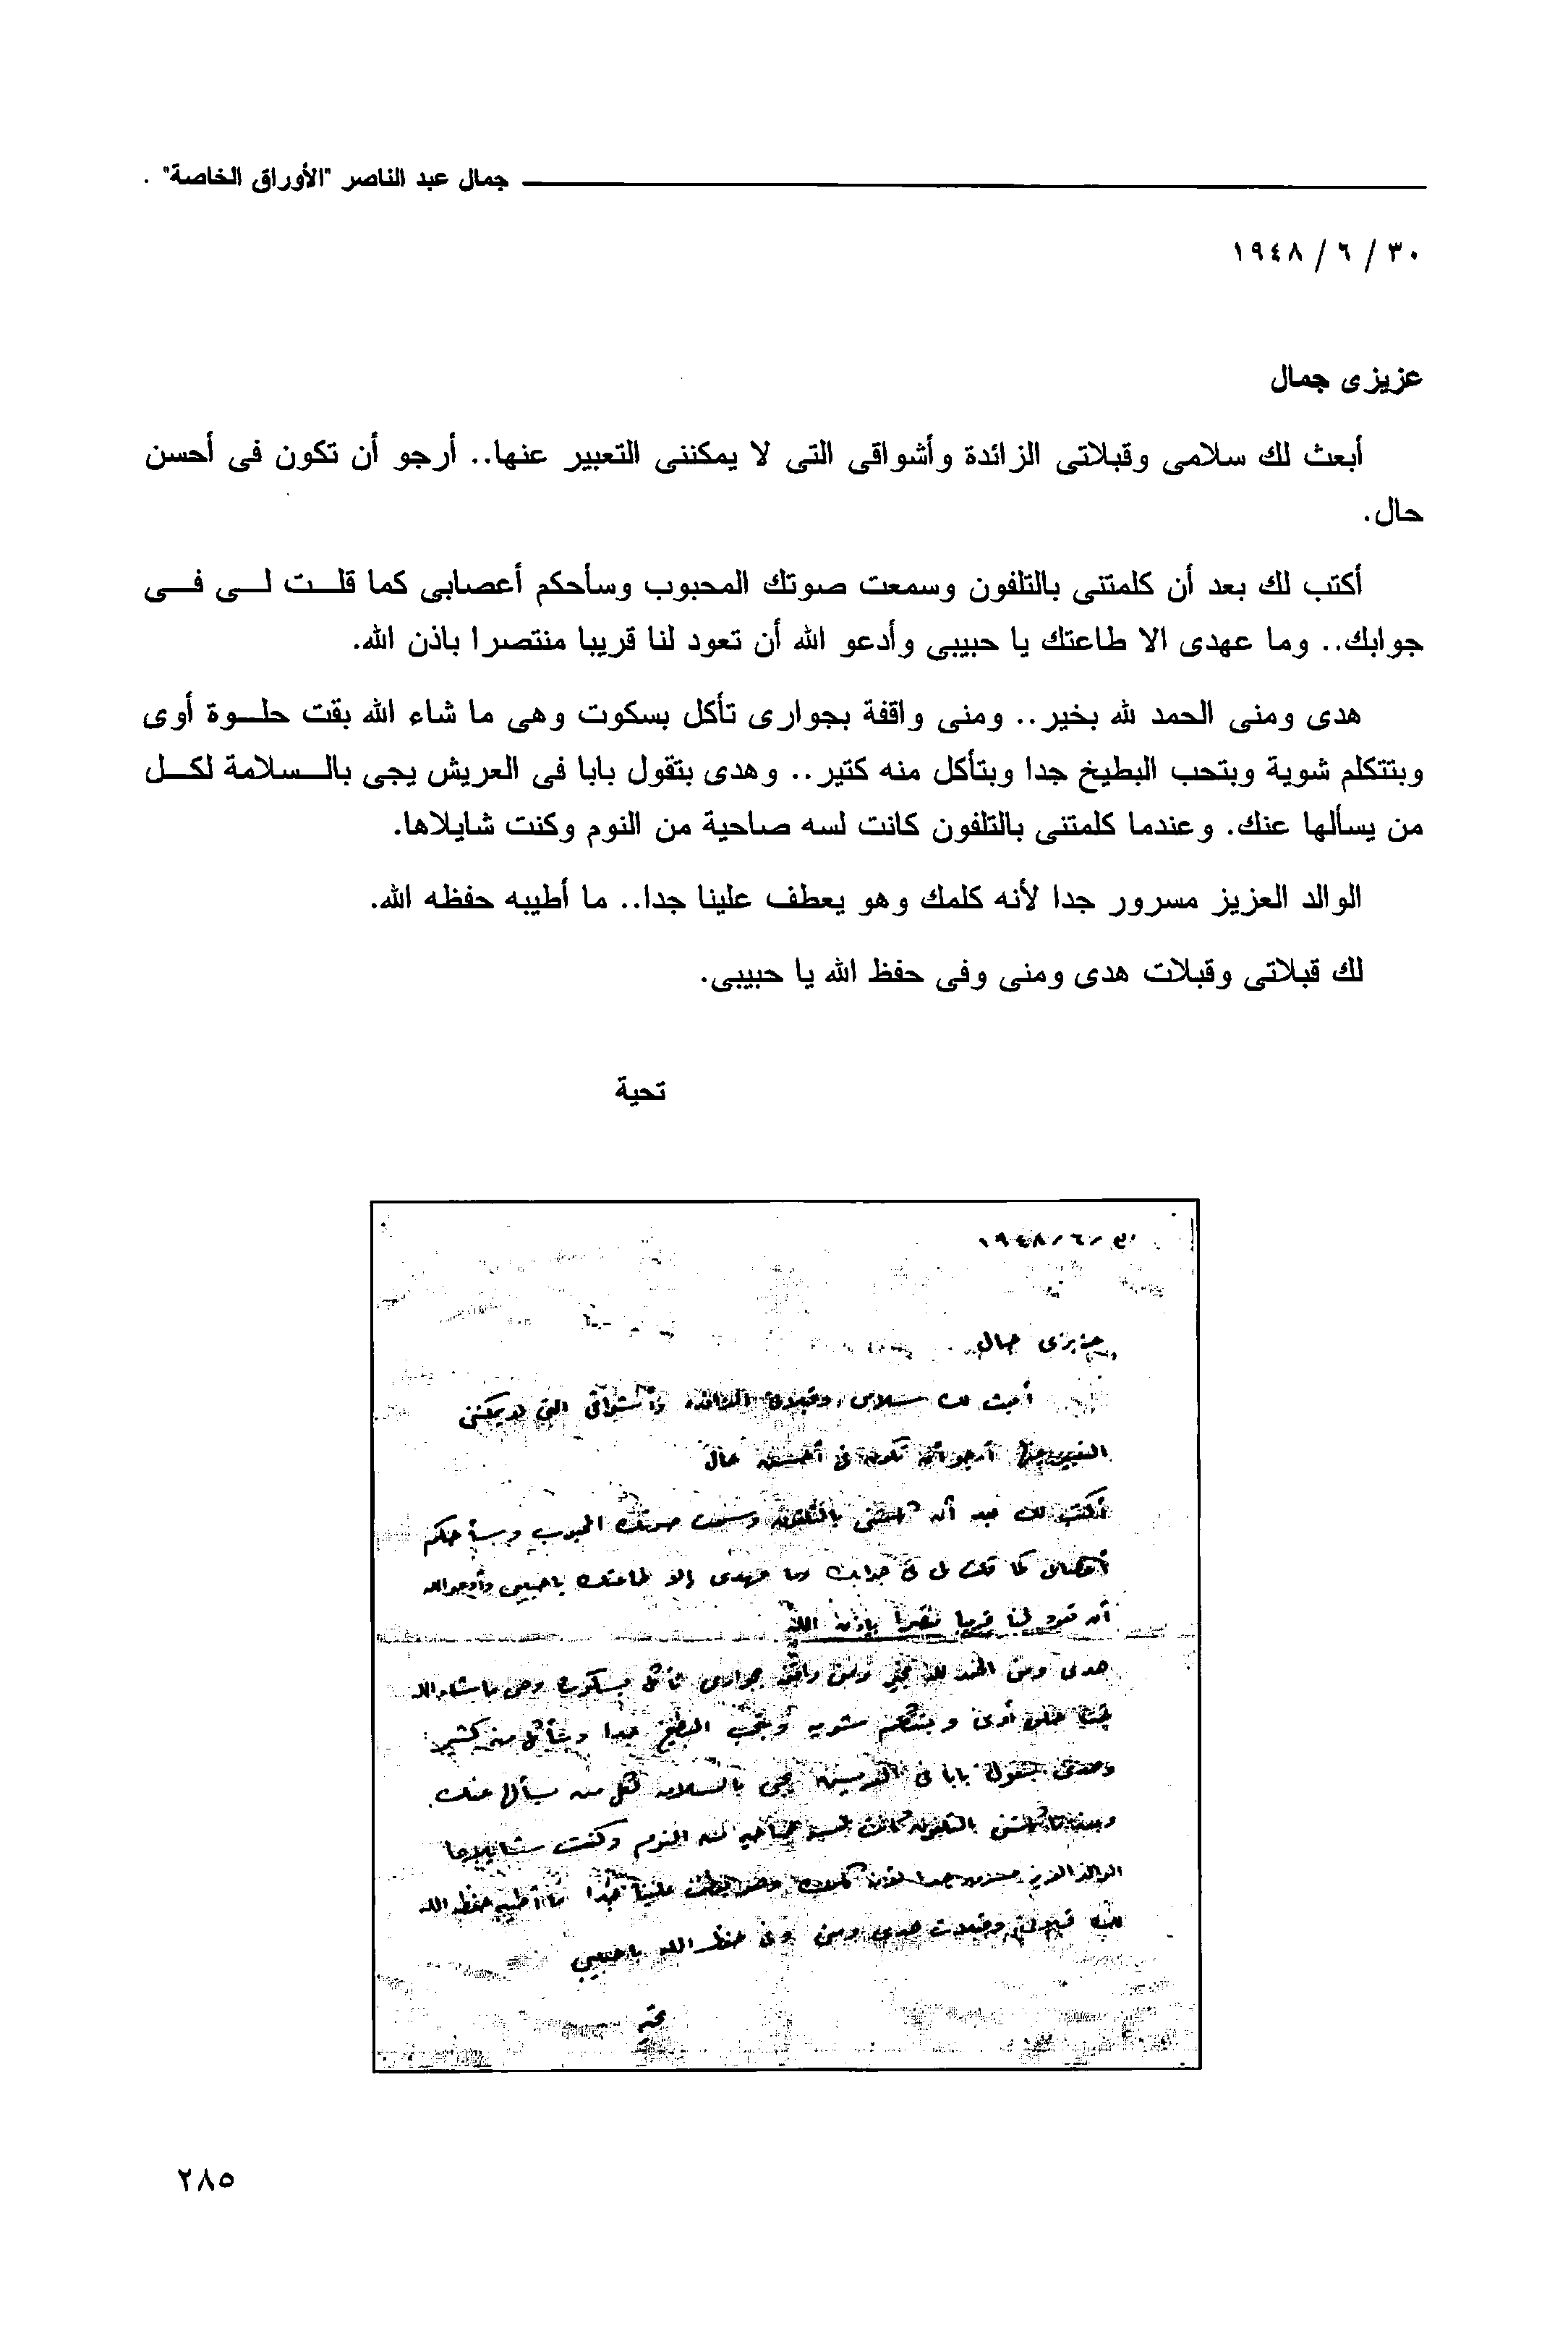 جمال عبد الناصر "الأوراق الخاصة" .
٣٠ / ٦ / ١٩٤٨
عزيزى جمال
أبعث لك سلامى وقبلاتى الزائدة وأشواقى التى لا يمكننى التعبير عنها.. أرجو أن تكون فى أحسن
حال.
أكتب لك بعد أن كلمتنى بالتلفون وسمعت صوتك المحبوب وسأحكم أعصابى كما قلت لى فى
جوابك.. وما عهدى الا طاعتك يا حبيبى وأدعو الله أن تعود لنا قريبا منتصرا باذن الله.
هدى ومنى الحمد لله بخير.. ومنى واقفة بجوارى تأكل بسكوت وهى ما شاء الله بقت حلوة أوى
وبتتكلم شوية وبتحب البطيخ جدا وبتأكل منه كتير.. وهدى بتقول بابا فى العريش يجى بالسلامة لكل
من يسألها عنك. وعندما كلمتنى بالتلفون كانت لسه صاحية من النوم وكنت شايلاها.
الوالد العزيز مسرور جدا لأنه كلمك وهو يعطف علينا جدا.. ما أطيبه حفظه الله.
لك قبلاتى وقبلات هدى ومنى وفى حفظ الله يا حبيبى.
تحية
٣٠/٦/١٩٤٨
عزيزى جمال
أبعث لك سلامى وقبلاتى الزائدة وأشواقى التى لا يمكننى
التعبير عنها أرجو أن تكون فى أحسن حال
أكتب لك بعد أن كلمتنى بالتلفون وسمعت صوتك المحبوب وسأحكم
أعصابى كما قلت لى فى جوابك وما عهدى إلا طاعتك يا حبيبى وأدعو الله
أن تعود لنا قريبا منتصرا بإذن الله
هدى ومنى الحمد لله بخير ومنى واقفة بجوارى تأكل بسكوت وهى ما شاء الله
بقت حلوة أوى وبتتكلم شوية وبتحب البطيخ جدا وبتأكل منه كتير
وهدى بتقول بابا فى العريش يجى بالسلامة لكل من يسألها عنك.
وعندما كلمتنى بالتلفون كانت لسه صاحية من النوم وكنت شايلاها
الوالد العزيز مسرور جدا لأنه كلمك وهو يعطف علينا جدا ما أطيبه حفظه الله
لك قبلاتى وقبلات هدى ومنى وفى حفظ الله يا حبيبى
تحية
٢٨٥